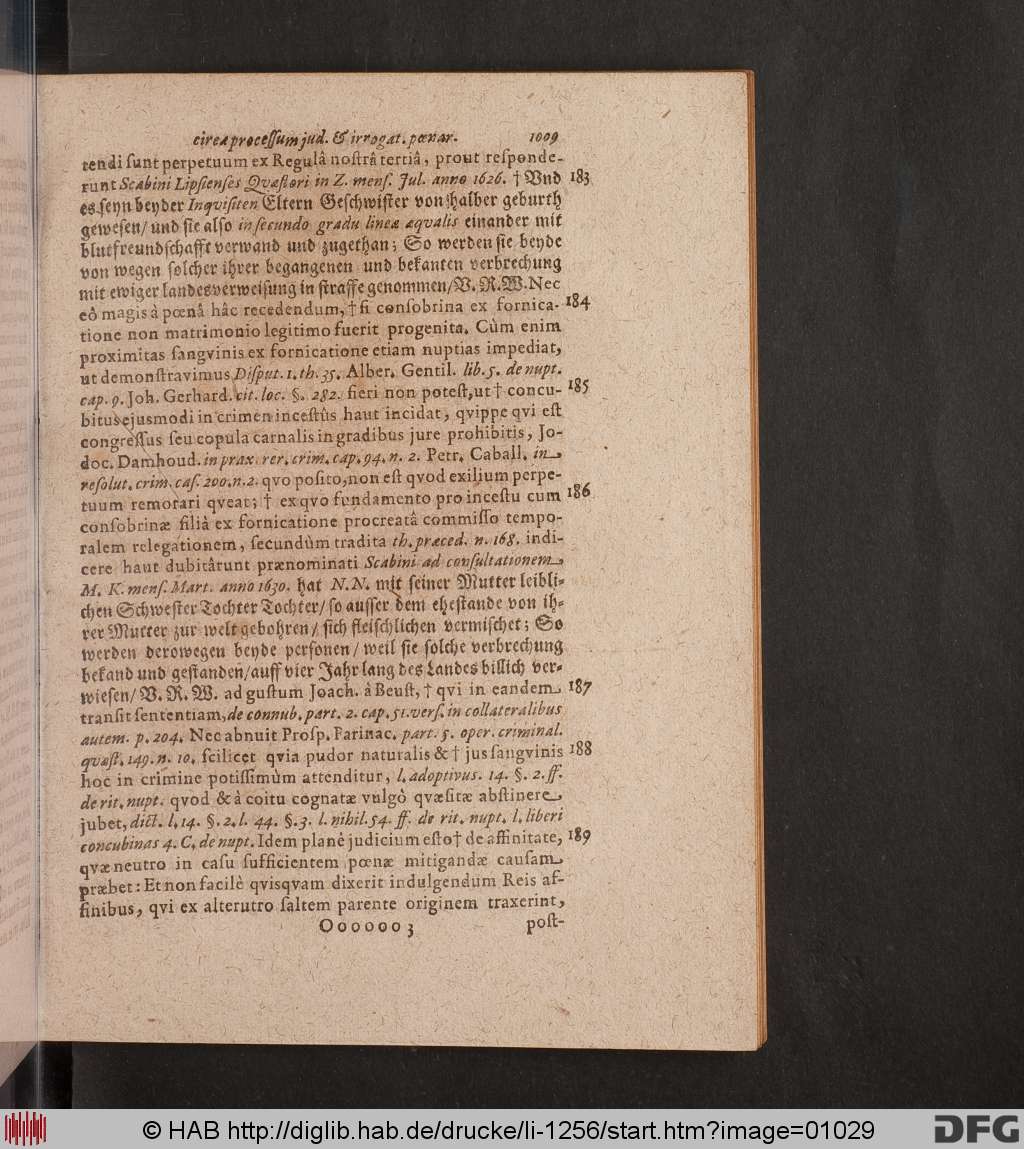 circa processum jud. & irrogat. pœnar. 1009
tendi sunt perpetuum ex Regulâ nostrâ tertiâ, prout responde-
runt Scabini Lipsienses Qvæstori in Z. mens. Jul. anno 1626. † Vnd 183
es seyn beyder Inqvisiten Eltern Geschwister von halber geburth
gewesen/ und sie also in secundo gradu lineæ æqvalis einander mit
blutfreundschafft verwand und zugethan; So werden sie beyde
von wegen solcher ihrer begangenen und bekanten verbrechung
mit ewiger landesverweisung in straffe genommen/ V. R. W. Nec
eô magis à pœnâ hâc recedendum, † si consobrina ex fornica- 184
tione non matrimonio legitimo fuerit progenita. Cùm enim
proximitas sangvinis ex fornicatione etiam nuptias impediat,
ut demonstravimus Disput. 1. th. 35. Alber. Gentil. lib. 5. de nupt.
cap. 9. Joh. Gerhard. cit. loc. §. 282. fieri non potest, ut † concu- 185
bitus ejusmodi in crimen incestûs haut incidat, qvippe qvi est
congressus seu copula carnalis in gradibus jure prohibitis, Jo-
doc. Damhoud. in prax. rer. crim. cap. 94. n. 2. Petr. Caball. in
resolut. crim. cas. 200. n. 2. qvo posito, non est qvod exilium perpe-
tuum remorari qveat; † ex qvo fundamento pro incestu cum 186
consobrinæ filiâ ex fornicatione procreatâ commisso tempo-
ralem relegationem, secundùm tradita th. præced. n. 168. indi-
cere haut dubitârunt prænominati Scabini ad consultationem
M. K. mens. Mart. anno 1630. hat N. N. mit seiner Mutter leibli-
chen Schwester Tochter Tochter/ so ausser dem ehestande von ih-
rer Mutter zur welt gebohren/ sich fleischlichen vermischet; So
werden derowegen beyde personen/ weil sie solche verbrechung
bekand und gestanden/ auff vier Jahr lang des Landes billich ver-
wiesen/ V. R. W. ad gustum Joach. â Beust, † qvi in eandem 187
transit sententiam, de connub. part. 2. cap. 51. vers. in collateralibus
autem. p. 204. Nec abnuit Prosp. Farinac. part. 5. oper. criminal.
qvæst. 149. n. 10. scilicet qvia pudor naturalis & † jus sangvinis 188
hoc in crimine potissimùm attenditur, l. adoptivus. 14. §. 2. ff.
de rit. nupt. qvod & à coitu cognatæ vulgò qvæsitæ abstinere
jubet, dict. l. 14. §. 2. l. 44. §. 3. l. nihil. 54. ff. de rit. nupt. l. liberi
concubinas 4. C. de nupt. Idem planè judicium esto † de affinitate, 189
qvæ neutro in casu sufficientem pœnæ mitigandæ causam
præbet: Et non facilè qvisqvam dixerit indulgendum Reis af-
finibus, qvi ex alterutro saltem parente originem traxerint,
Oooooo 3 post-
© HAB http://diglib.hab.de/drucke/li-1256/start.htm?image=01029
DFG